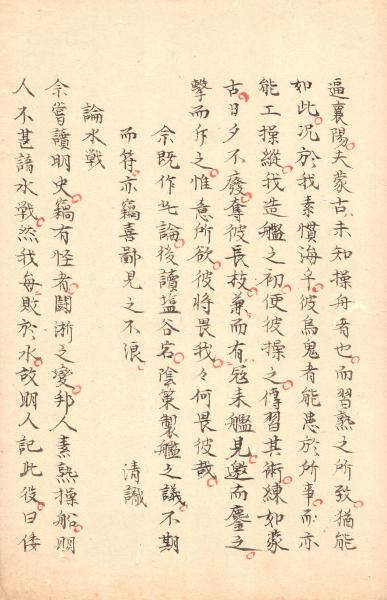 逼襄陽夫蒙古未知操舟者也而習熟之所致猶能
如此况於我素慣海乎彼烏鬼者能患於所事而亦
能工操縱我造艦之初便彼操之傳習其術練如蒙
古日夕不廢奪彼長技兼而有寇来艦見邀而鏖之
擊而斥之惟意所欲彼將畏我々何畏彼哉
余既作此論後讀塩谷宕陰策製艦之議不期
而符亦竊喜鄙見之不浪 清識
論水戰
余嘗讀明史竊有怪者鬪浙之變邦人素熟操船明
人不甚諳水戰然我每敗於水故明人記此役曰倭